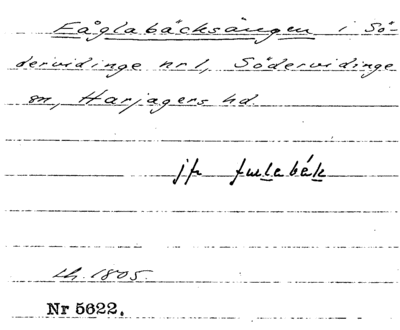 Fåglabäcksängen i Sö-
dervidinge nr 1, Södervidinge
sn, Harjagers hd.
jfr fulebäk
Lh. 1805.
Nr 5622.